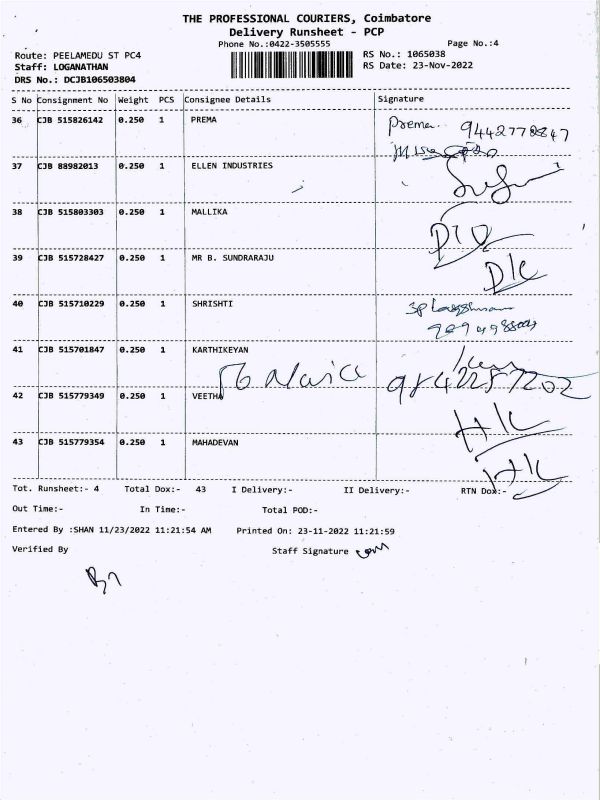 THE PROFESSIONAL COURIERS, Coimbatore
Delivery Runsheet - PCP
Phone No.:0422-3505555
Page No.:4
Route: PEELAMEDU ST PC4
RS No.: 1065038
Staff: LOGANATHAN
RS Date: 23-Nov-2022
DRS No.: DCJB106503804
S No Consignment No Weight PCS Consignee Details Signature
36 CJB 515826142 0.250 1 PREMA Prema. 9442770847
37 CJB 88982013 0.250 1 ELLEN INDUSTRIES
38 CJB 515803303 0.250 1 MALLIKA
39 CJB 515728427 0.250 1 MR B. SUNDRARAJU D/C
40 CJB 515710229 0.250 1 SHRISHTI
41 CJB 515701847 0.250 1 KARTHIKEYAN
9842257202
42 CJB 515779349 0.250 1 VEETHA H/C
43 CJB 515779354 0.250 1 MAHADEVAN H/C
Tot. Runsheet:- 4 Total Dox:- 43 I Delivery:- II Delivery:- RTN Dox:-
Out Time:- In Time:- Total POD:-
Entered By :SHAN 11/23/2022 11:21:54 AM Printed On: 23-11-2022 11:21:59
Verified By Staff Signature